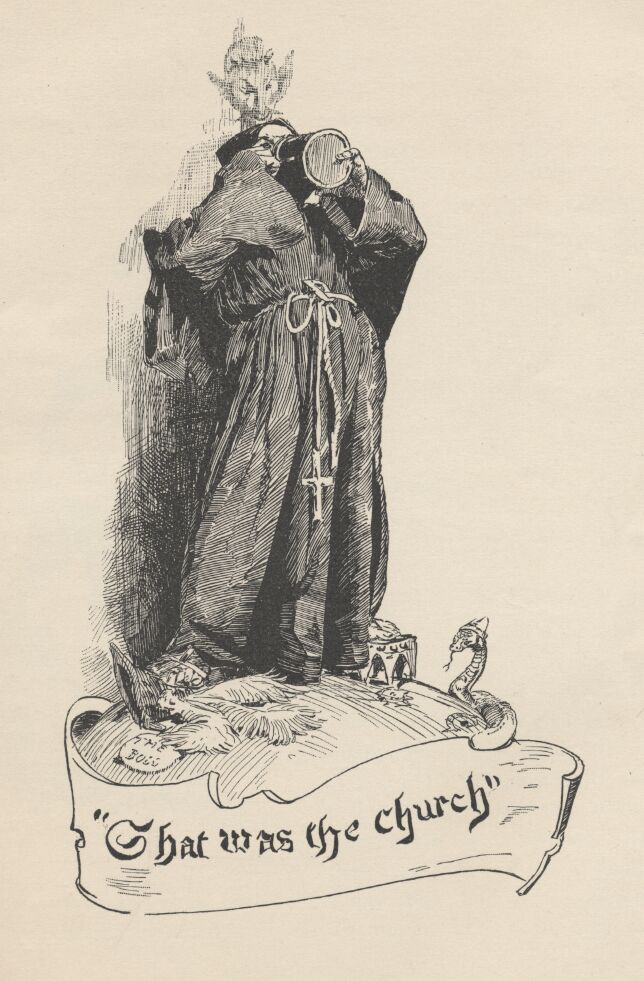 THE
BULL
"That was the church"